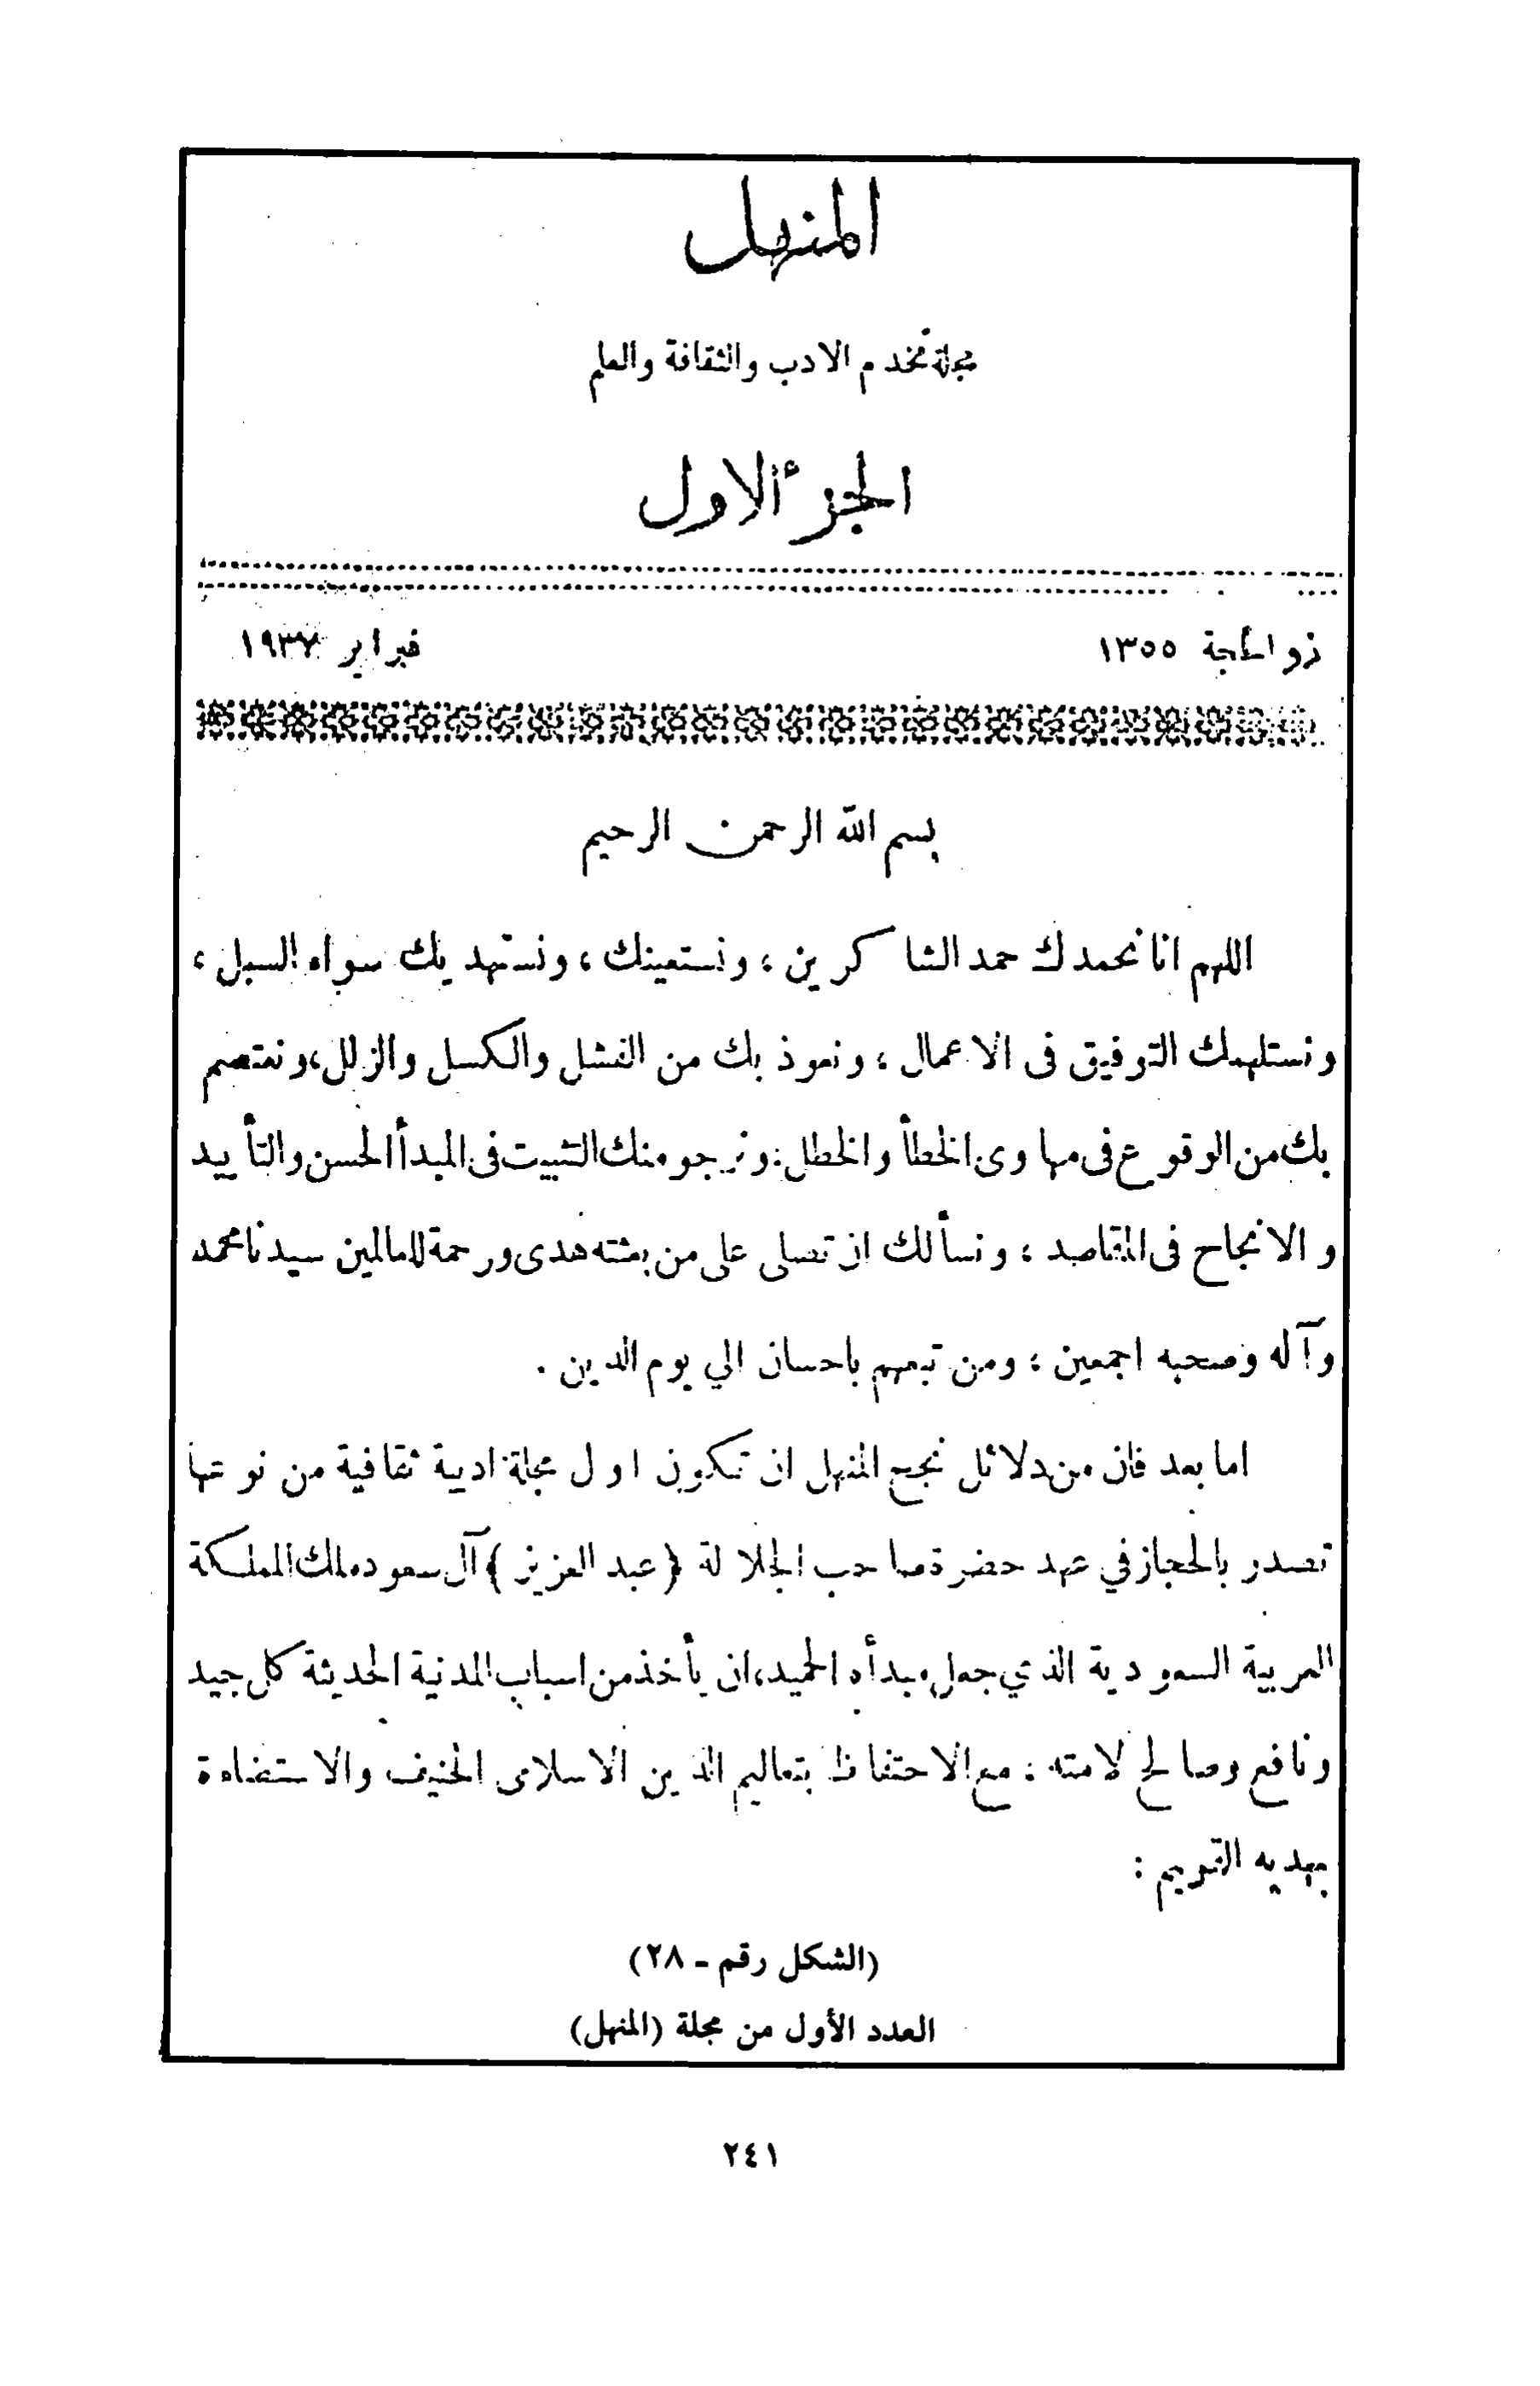 المنهل
مجلة تخدم الادب والثقافة والعلم
الجزء الاول
ذو الحجة ١٣٥٥
فبراير ١٩٣٧
بسم الله الرحمن الرحيم
اللهم انا نحمدك حمد الشاكرين ، ونستعينك ، ونستهديك سواء السبل ،
ونستلهمك التوفيق فى الاعمال ، ونعوذ بك من الفشل والكسل والزلل ، ونعتصم
بك من الوقوع فى مهاوى الخطأ والخطل : ونرجو منك التثبيت فى المبدأ الحسن والتأييد
والانجاح فى المقاصد ، ونسألك ان تصلى على من بعثته هدى ورحمة للعالمين سيدنا محمد
وآله وصحبه اجمعين ، ومن تبعهم باحسان الي يوم الدين .
اما بعد فان من دلائل نجح المنهل ان تكون اول مجلة ادبية ثقافية من نوعها
تصدر بالحجاز في عهد حضرة صاحب الجلالة ( عبد العزيز ) آل سعود ملك المملكة
العربية السعودية الذي جعل مبدأه الحميد ، ان يأخذ من اسباب المدنية الحديثة كل جيد
ونافع وصالح لامته : مع الاحتفاظ بتعاليم الدين الاسلامى الحنيف والاستضاءة
بهديه القويم :
(الشكل رقم - ٢٨)
العدد الأول من مجلة (المنهل)
٢٤١